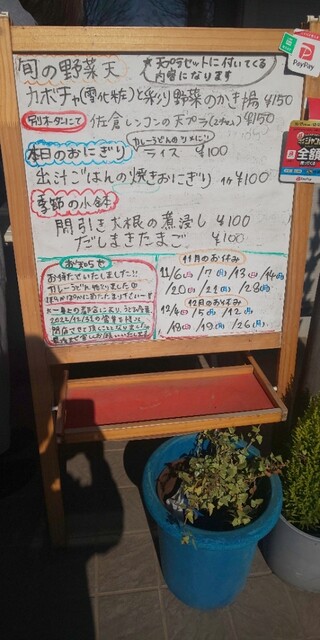 旬の野菜天
★天プラセットに付いてくる
内容になります
カボチャ(雪化粧)と彩り野菜のかき揚 ¥150
別オーダーにて
佐倉レンコンの天プラ(2ヶ) ¥150
カレーうどんのツメに!!
本日のおにぎり
ライス ¥100
出汁ごはんの焼きおにぎり 1ヶ ¥100
季節の小鉢
間引き大根の煮浸し ¥100
だしまきたまご ¥100
お知らせ
お待たせいたしました!!
カレーうどん始りました
11月のお休み
11/6(日) /7(月) /13(日) /14(月)
/20(日) /21(月) /28(月)
12月のお休み
12/4(日) /5(月) /12(月)
/18(日) /19(月) /26(月)
PayPay
PayPay
全額